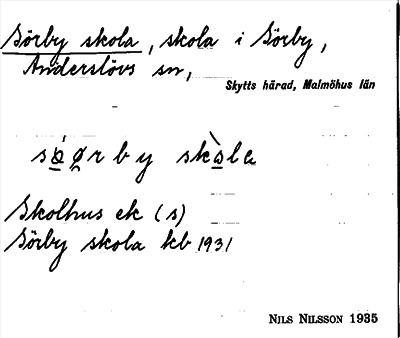 Sörby skola, skola i Sörby,
Anderslövs sn,
Skytts härad, Malmöhus län
Skolhus ek (s)
Sörby skola kb 1931
NILS NILSSON 1935